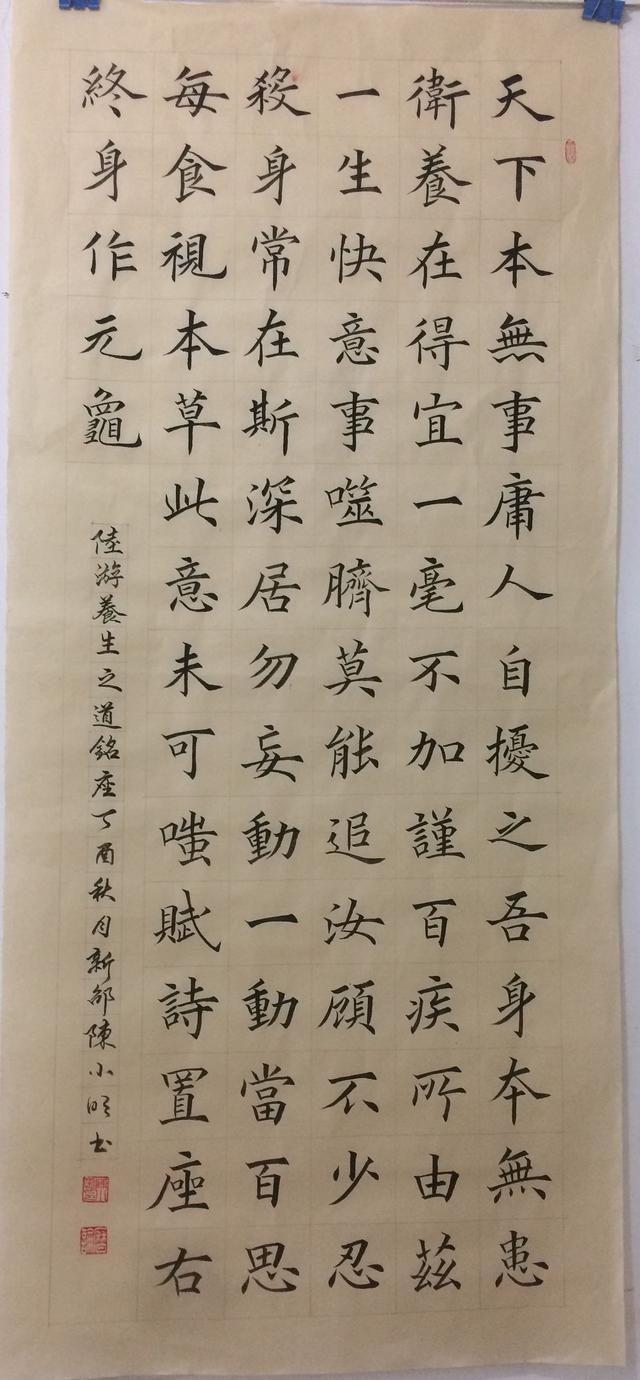 天下本無事庸人自擾之吾身本無患
衛養在得宜一毫不加謹百疾所由茲
一生快意事噬臍莫能追汝顧不少忍
殺身常在斯深居勿妄動一動當百思
每食視本草此意未可嗤賦詩置座右
終身作元龜
陸游養生之道銘座丁酉秋月新邵陳小明书